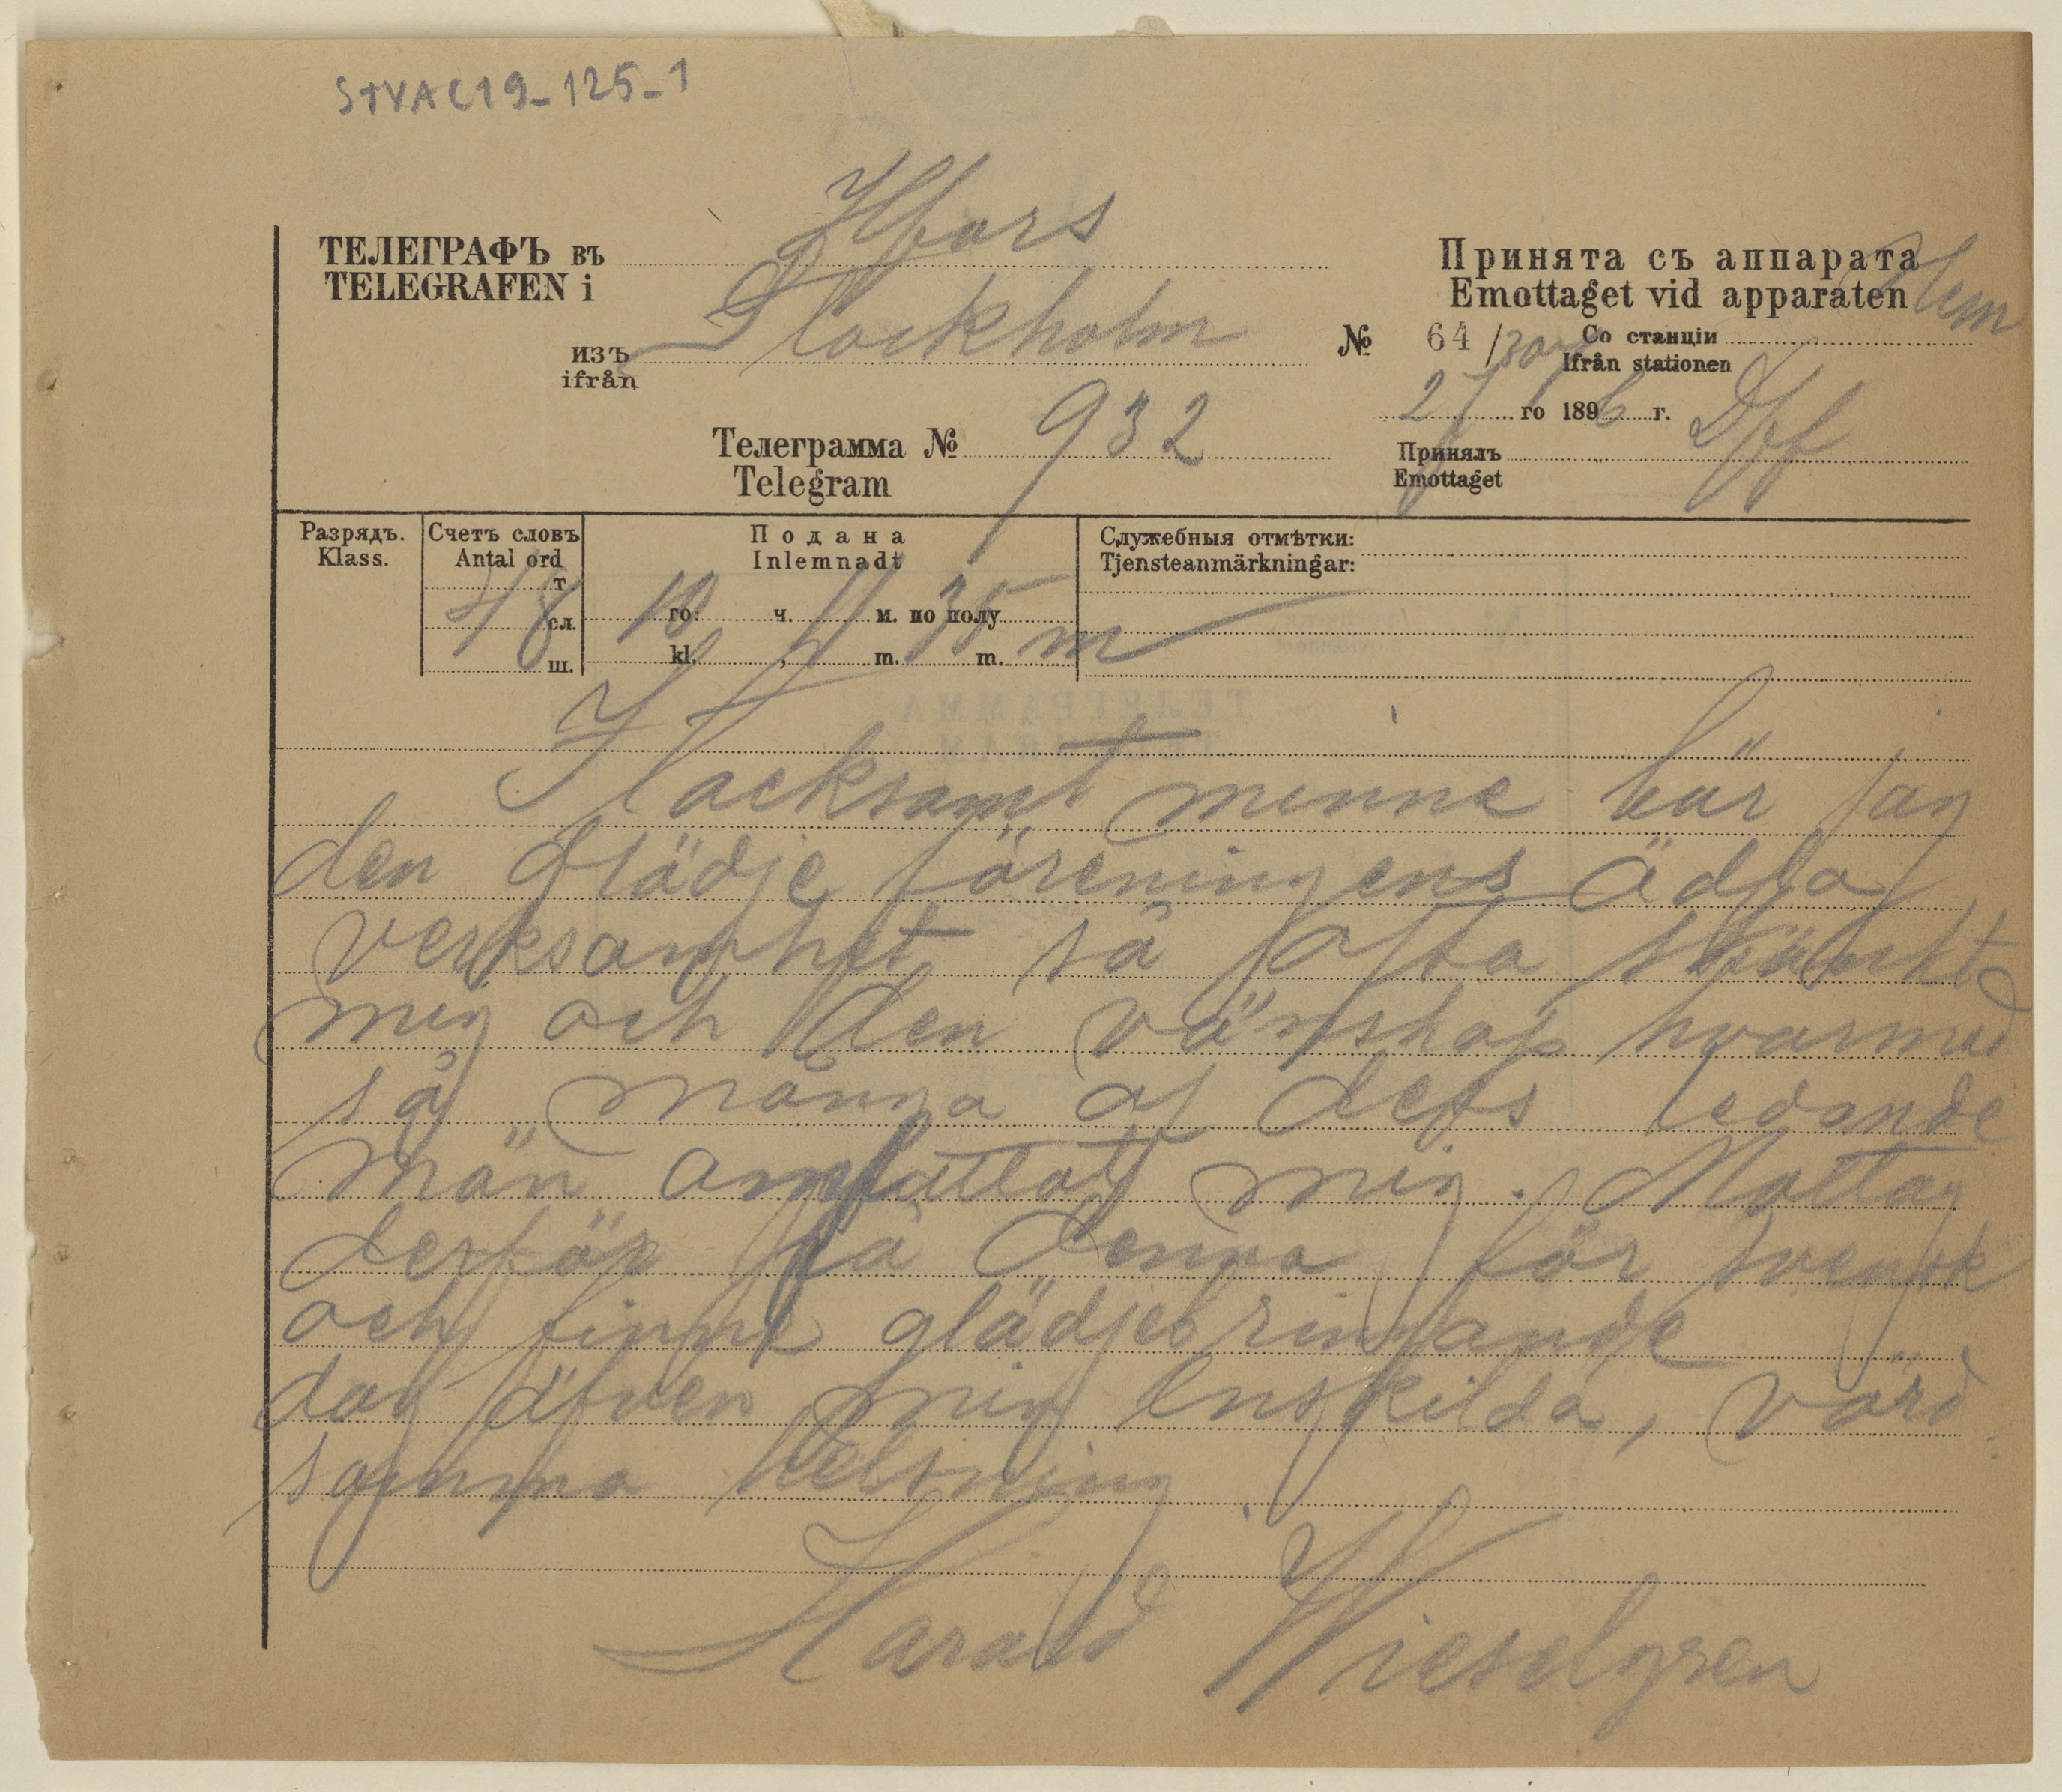 STVAC19_125_1
Hfors
ТЕЛЕГРАФЪ въ
TELEGRAFEN i
Stockholm
изъ
ifrån
Принята съ аппарата
Emottaget vid apparaten
№ 64 / Со станціи
Ifrån stationen
27 го 1896 г.
Телеграмма № 932
Telegram
Принялъ
Emottaget
Разрядъ.
Klass.
Счетъ словъ
Antal ord
т
48 сл.
ш.
Подана
Inlemnadt
го: ч. м. по полу
kl. , m. m.
10 4 35 m
Служебныя отмѣтки:
Tjensteanmärkningar:
I tacksamt minne bär jag
den glädje föreningens ädla
verksamhet så ofta skänkt
mig och den vänskap hvarmed
så många af dess ledande
män omfattat mig. Mottag
derför på denna för svensk
och finne glädjebringande
dag äfven min enskilda, värd
samma helsning.
Harald Wieselgren